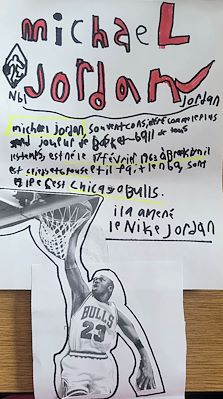 michaeL
Jordan
Nb1
Jordan
michael Jordan, souvent considéré comme le plus
grand joueur de Basket-ball de tous
les temps, est né le 17 février 1963 à Brooklyn il
est
et il fait le nba, son
équipe est Chicago Bulls.
il a amené
le Nike Jordan
BULLS
23